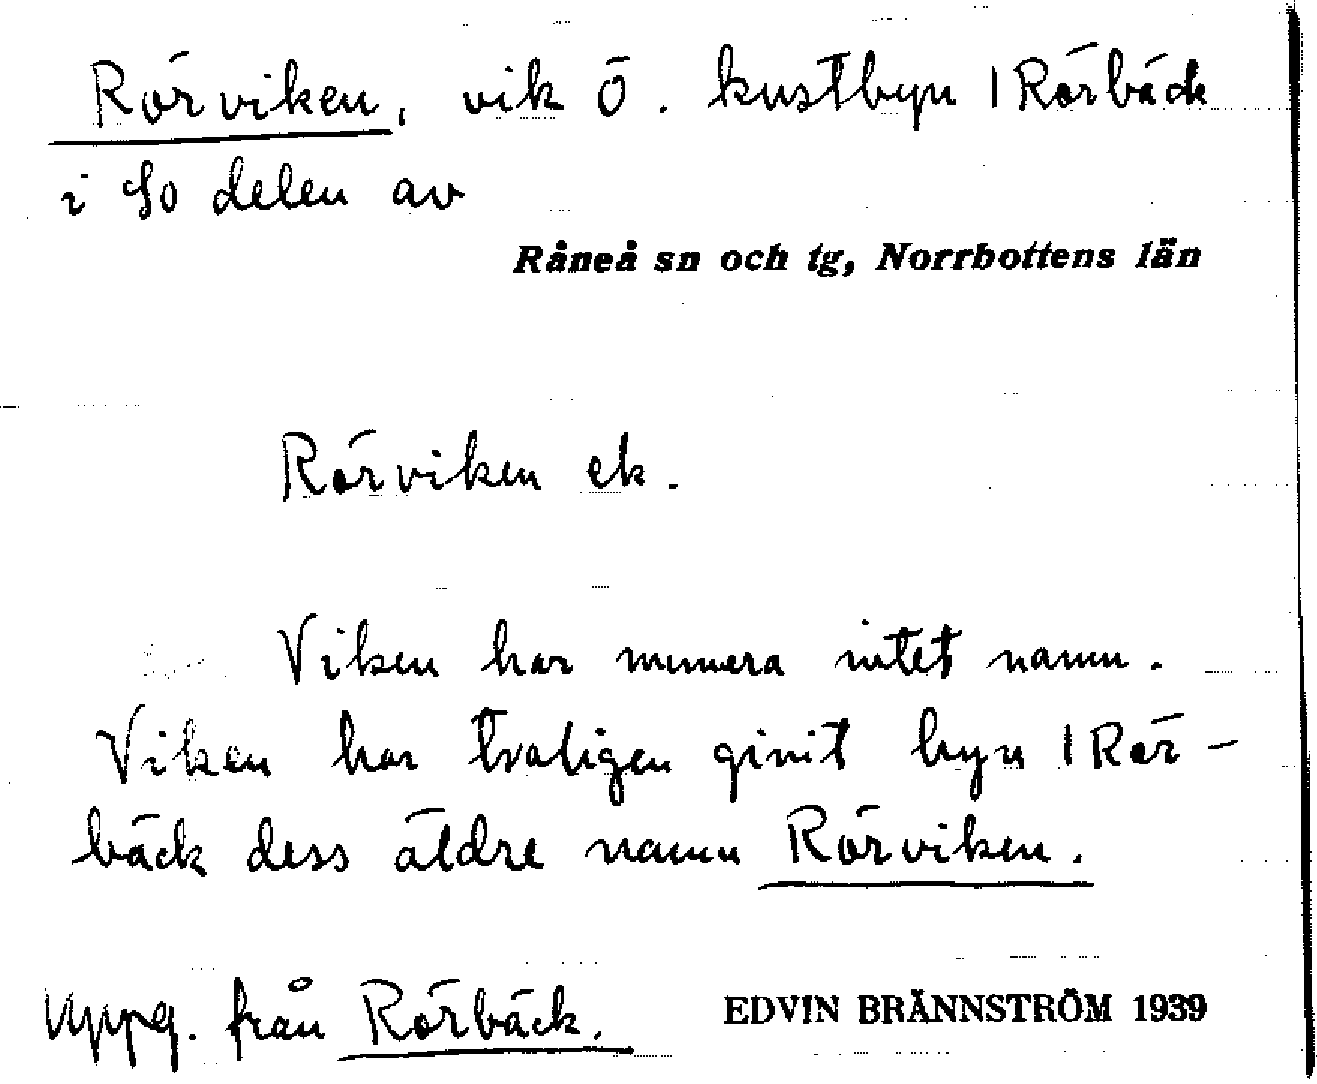 Rörviken, vik Ö. kustbyn | Rörbäck
i So delen av
Råneå sn och tg, Norrbottens län
Rörviken ek.
Viken har numera intet namn.
Viken har troligen givit byn | Rör-
bäck dess äldre namn Rörviken.
Uppg. från Rörbäck.
EDVIN BRÄNNSTRÖM 1939